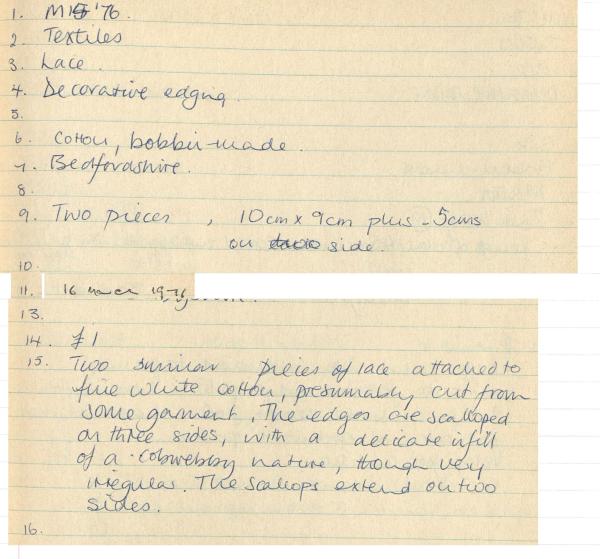 1. M15 '76.
2. Textiles
3. Lace.
4. Decorative edging.
5.
6. Cotton, bobbin-made.
7. Bedfordshire.
8.
9. Two pieces , 10cm x 9cm plus - 5cms
on side.
10.
11. 16 march 1976
13.
14. £1
15. Two similar pieces of lace attached to
fine white cotton, presumably cut from
some garment. The edges are scalloped
on three sides, with a delicate infill
of a cobwebby nature, though very
irregular. The scallops extend on two
sides.
16.